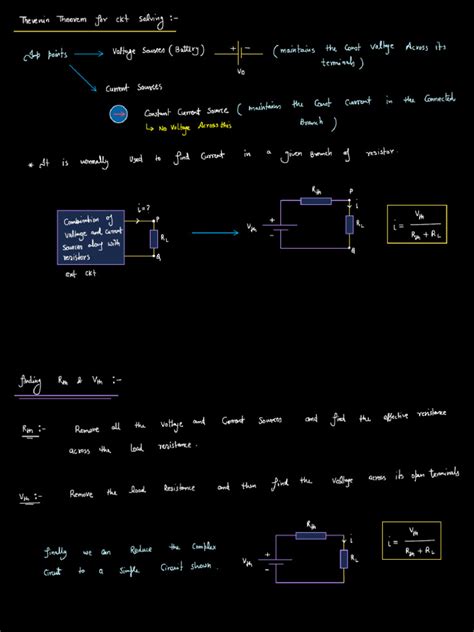 Thevenin Theorem for ckt solving :-
Imp points → Voltage Sources (Battery) + - V₀ (maintains the Const Voltage Across its terminals)
Current Sources
Constant Current Source (maintains the Const Current in the Connected Branch)
↳ No Voltage Across this
* It is normally Used to find Current in a given Branch of resistor.
Combination of
Voltage and Current
Sources along with
resistors
i=?
P
R_L
Q
ext ckt
R_th
P
i
+
V_th
-
R_L
Q
i = V_th / (R_th + R_L)
finding R_th & V_th :-
R_th :- Remove all the Voltage and Current Sources and find the effective resistance
across the load resistance.
V_th :- Remove the load Resistance and then find the Voltage across its open terminals
finally we can Reduce the Complex
Circuit to a Simple Circuit shown.
R_th
i
+
V_th
-
R_L
i = V_th / (R_th + R_L)